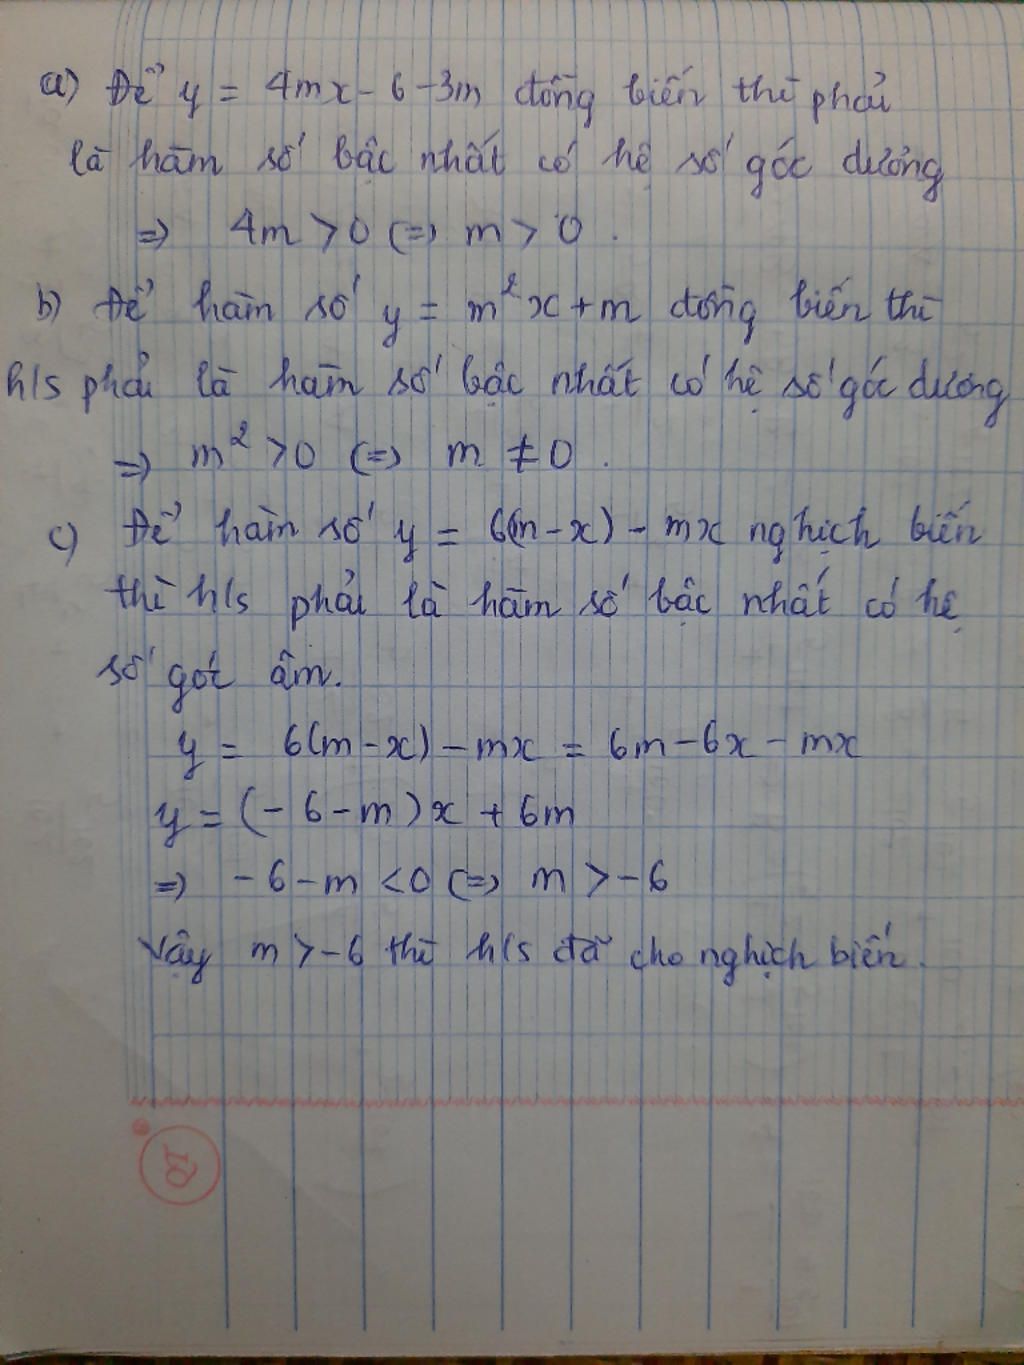 a) Để y = 4mx - 6 - 3m đồng biến thì phải
là hàm số bậc nhất có hệ số góc dương
=> 4m > 0 (=) m > 0 .
b) Để hàm số y = m²x + m đồng biến thì
h/s phải là hàm số bậc nhất có hệ số góc dương
=> m² > 0 (=) m ≠ 0 .
c) Để hàm số y = 6(m - x) - mx nghịch biến
thì h/s phải là hàm số bậc nhất có hệ
số góc âm.
y = 6(m - x) - mx = 6m - 6x - mx
y = (- 6 - m) x + 6m
=> - 6 - m < 0 (=) m > - 6
Vậy m > -6 thì h/s đã cho nghịch biến.